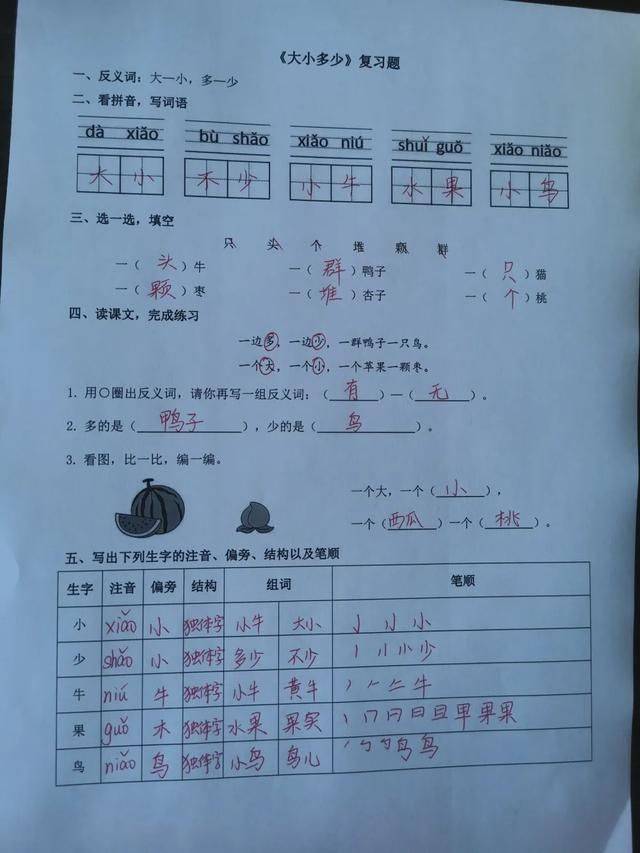 《大小多少》复习题
一、反义词：大—小，多—少
二、看拼音，写词语
dà xiǎo bù shǎo xiǎo niú shuǐ guǒ xiǎo niǎo
大小 不少 小牛 水果 小鸟
三、选一选，填空
只 头 个 堆 颗 群
一（头）牛 一（群）鸭子 一（只）猫
一（颗）枣 一（堆）杏子 一（个）桃
四、读课文，完成练习
一边多，一边少，一群鸭子一只鸟。
一个大，一个小，一个苹果一颗枣。
1. 用〇圈出反义词，请你再写一组反义词：（有）—（无）。
2. 多的是（鸭子），少的是（鸟）。
3. 看图，比一比，编一编。
一个大，一个（小），
一个（西瓜）一个（桃）。
五、写出下列生字的注音、偏旁、结构以及笔顺
生字 注音 偏旁 结构 组词 笔顺
小 xiǎo 小 独体字 小牛 大小 亅 小
少 shǎo 小 独体字 多少 不少 小 少
牛 niú 牛 独体字 小牛 黄牛 丿 牛
果 guǒ 木 独体字 水果 果实 丨 冂 日 旦 甲 果 果
鸟 niǎo 鸟 独体字 小鸟 鸟儿 鸟 鸟